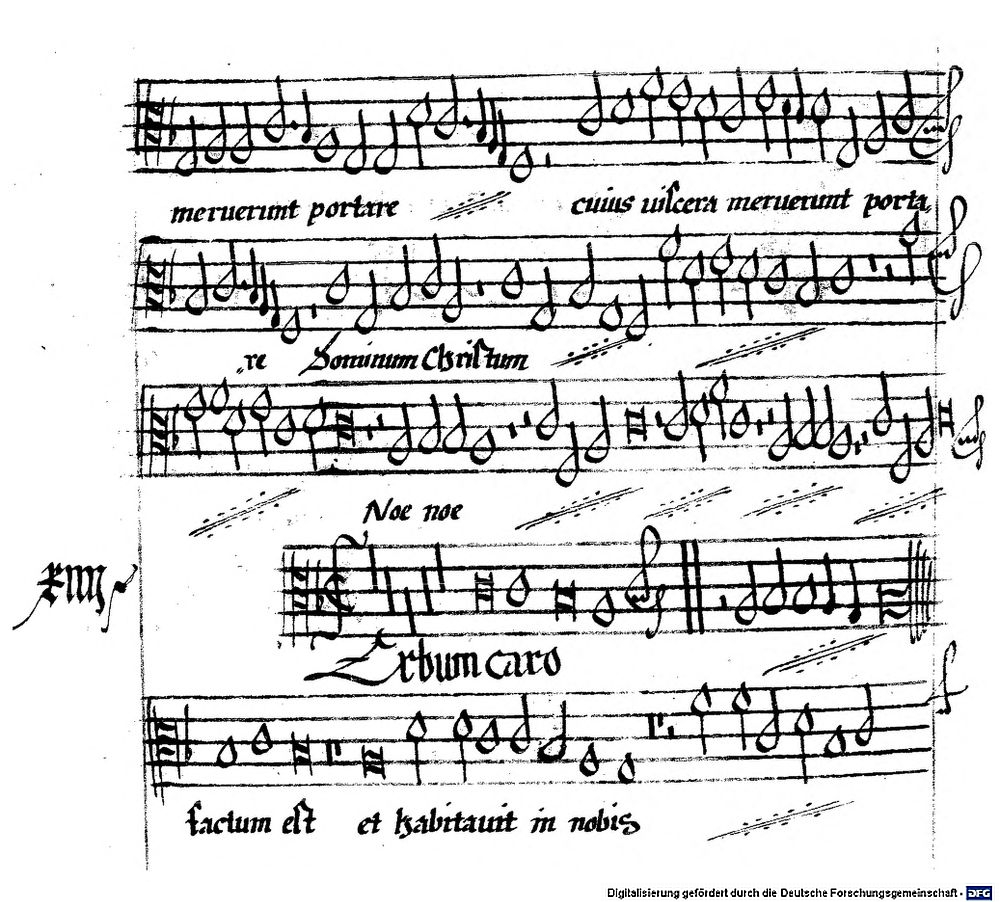 meruerunt portare cuius viscera meruerunt porta
re Dominum Christum
Noe noe
Erbum caro
factum est et habitavit in nobis
Digitalisierung gefördert durch die Deutsche Forschungsgemeinschaft - DFG